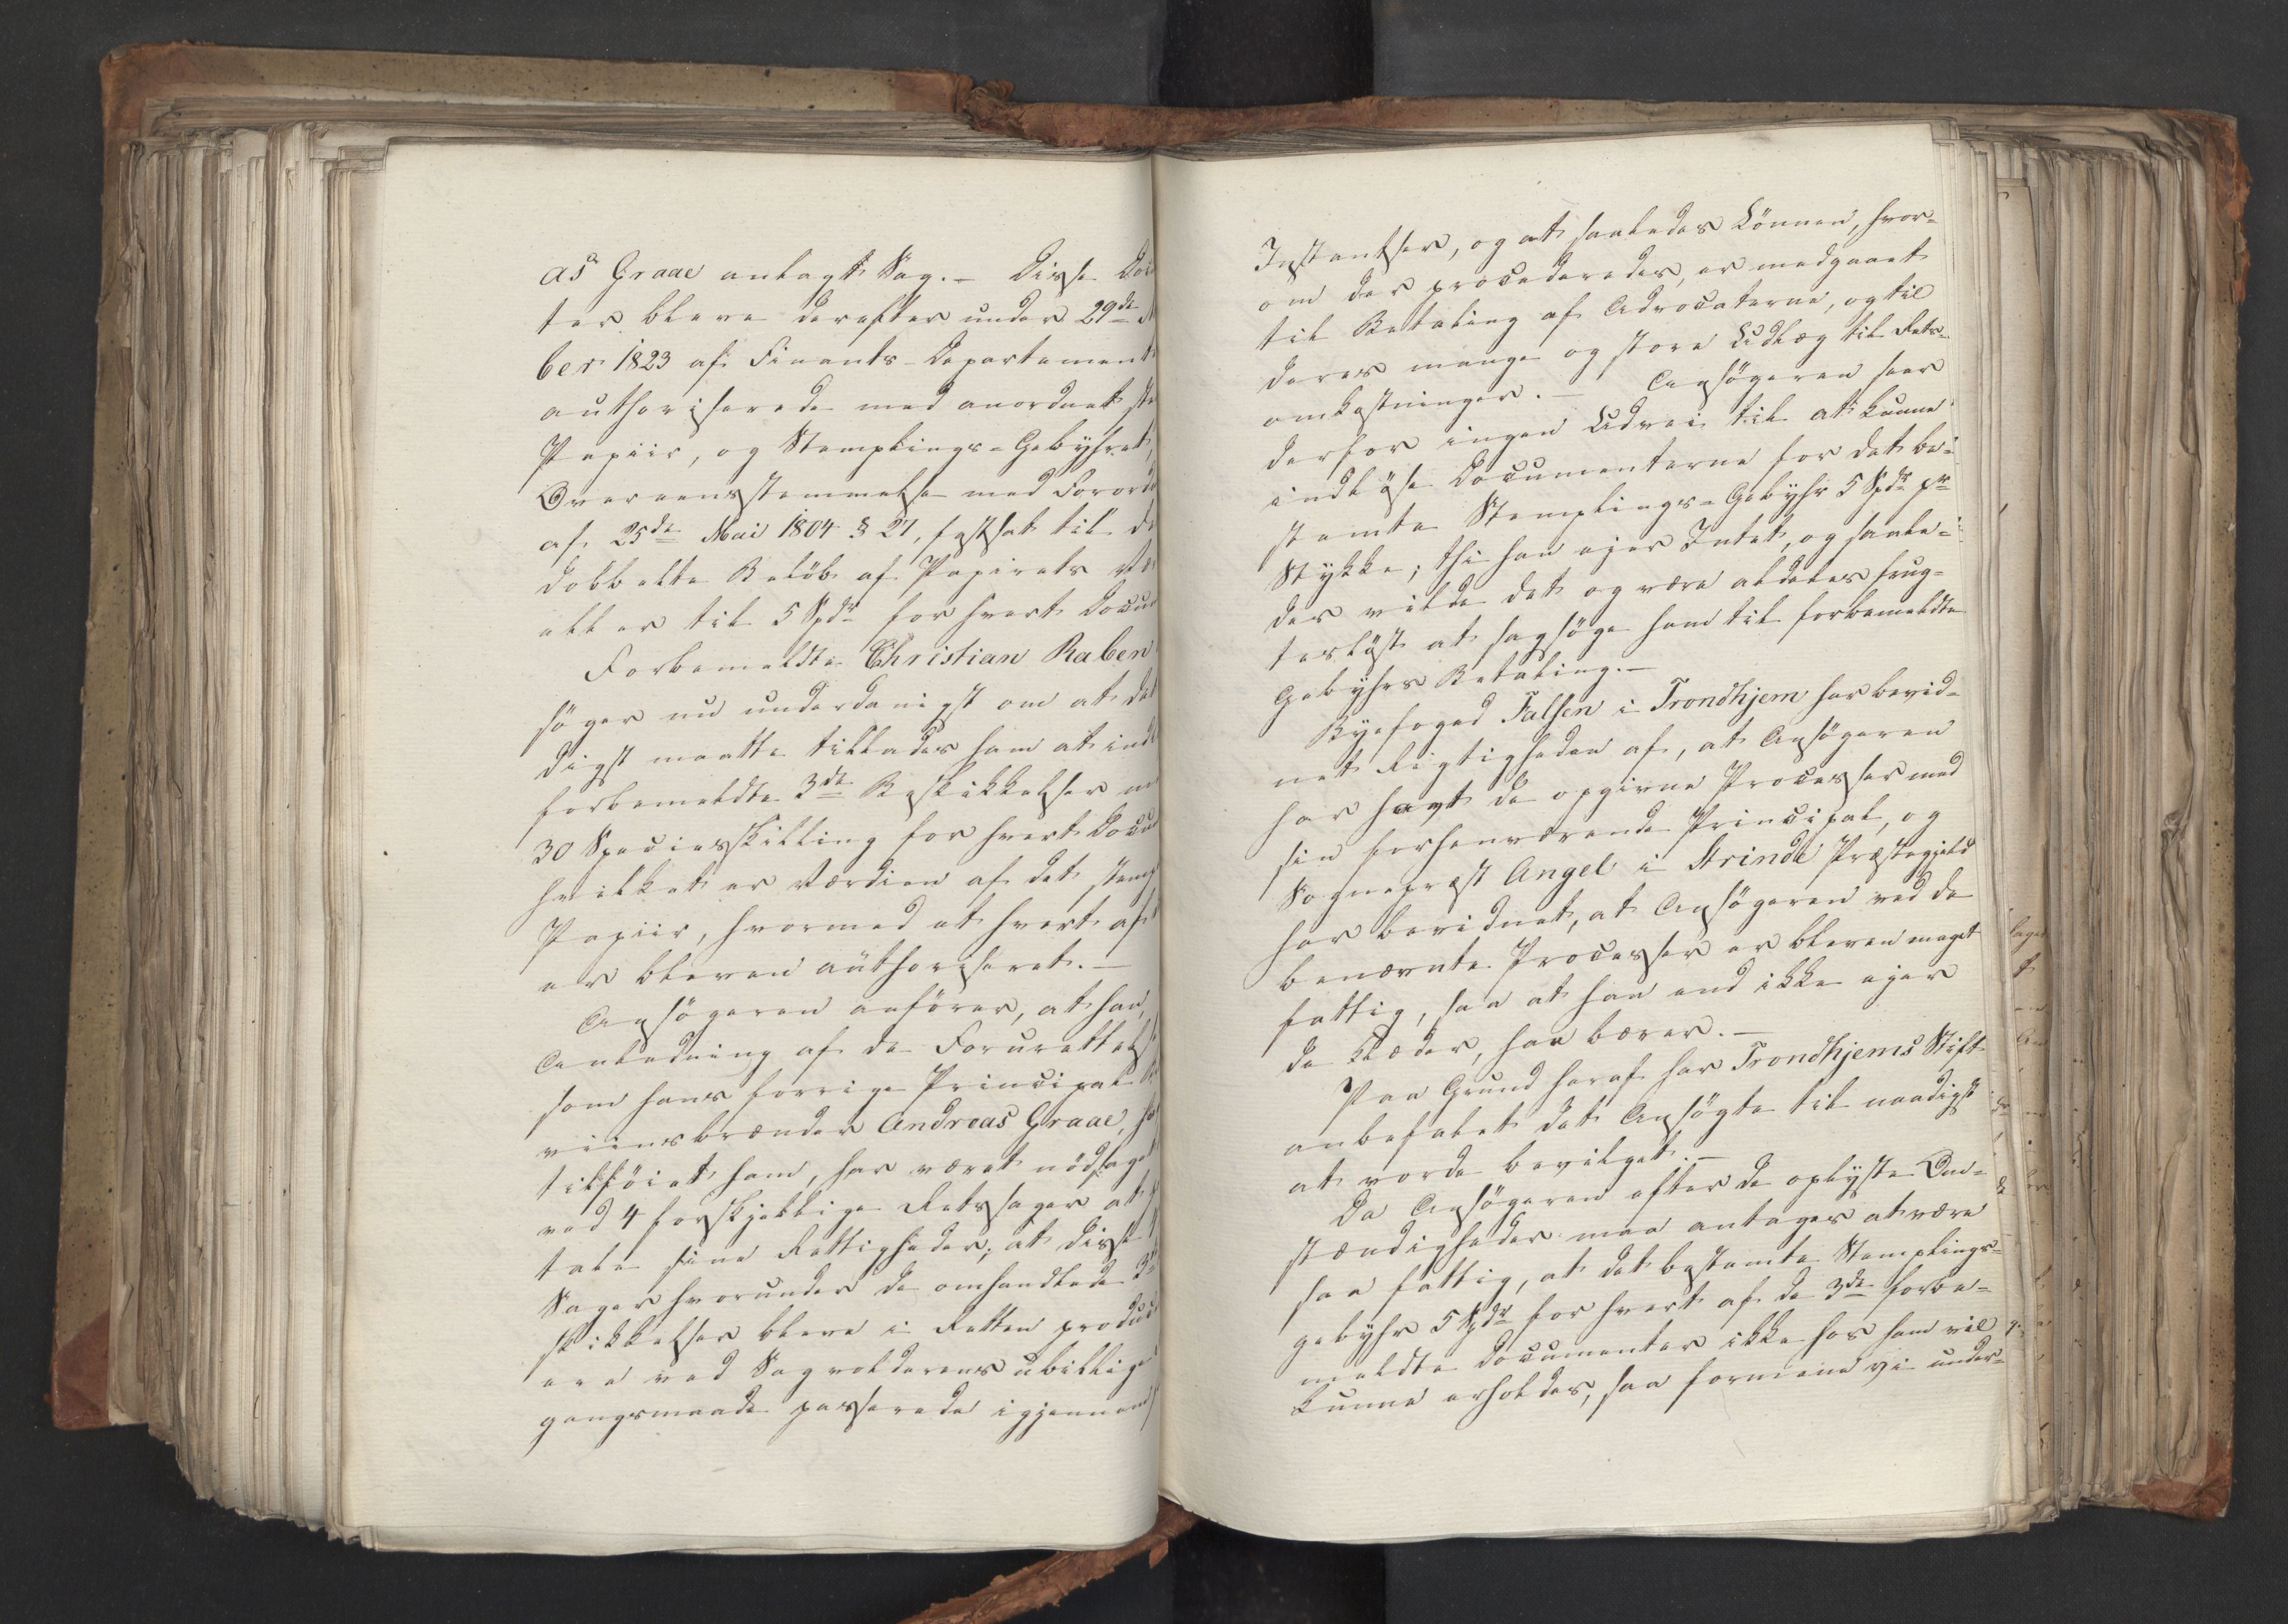 as Graae anlagt Sag. — Disse Do
ter bleve derefter under 29de
ber 1823 af Finants-Departement
authoriserede med anordnet ste
Papiir, og Stemplings-Gebyhret,
Overeensstemmelse med Forord
af 25de Mai 1804 § 27, fastsat til de
dobbelte Beløb af Papirets Væ
eller til 5 Spdr for hvert Docu
Forbemeldte Christian Raben
søger nu underdanigst om at det
digst maatte tillades ham at indl
forbemeldte 3de Beskikkelser m
30 Speciesskilling for hvert Docu
hvilket er Værdien af det stemp
Papiir, hvormed et hvert af
er bleven authoriseret. —
Ansøgeren anfører, at han,
Anledning af de Forurettels
som hans forrige Principal
viinsbrænder Andreas Graae, ha
tilføiet ham, har været nødsaget
ved 4 forskjellige Retssager at
tale sine Rettigheder; at disse
Sager hvorunder de omhandlede 3de
skikkelser bleve i Retten produc
ere ved Sagvolderens ubillige
gangsmaade passerede igjennem
Instantser, og at saaledes Lønnen, hvor-
om der procederedes, er medgaaet
til Betaling af Advocaterne, og til
deres mange og store Udlæg til Rets-
omkostninger. — Ansøgeren seer
derfor ingen Udvei til at kunne
indløse Documenterne for det be-
stemte Stemplings-Gebyhr 5 Spdr pr
Stykke; thi han ejer Intet, og saale-
des vilde det og være aldeles frug-
tesløst at sagsøge ham til forbemeldte
Gebyhrs Betaling. —
Byefoged Falsen i Trondhjem har bevid-
net Rigtigheden af, at Ansøgeren
har havt de opgivne Processer med
sin forhenværende Principal, og
Sognepræst Angel i Strinde Præstegjeld
har bevidnet, at Ansøgeren ved de
benævnte Processer er bleven meget
fattig, saa at han end ikke ejer
de Klæder, han bærer. —
Paa Grund heraf har Trondhjems Stift
anbefalet det Ansøgte til naadigst
at vorde bevilget. —
Da Ansøgeren efter de oplyste Om-
stændigheder maa antages at være
saa fattig, at det bestemte Stemplings-
gebyhr 5 Spdr for hvert af de 3de forbe-
meldte Documenter ikke hos ham vil
kunne erholdes, saa formene vi under-